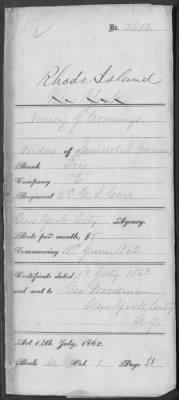 No. 3615
Rhode Island
Nancy J. Comings
Widow of Samuel L. Comings
Rank Priv
Company "E"
Regiment 5" U.S. Cav
New York City Agency.
Rate per month, $8
Commencing 18" June, 1862
Certificate dated 8" July, 1863
and sent to Geo. Woodman
New York City
N.Y.
Act 14th July, 1862.
Book A Vol. 1 Page 51